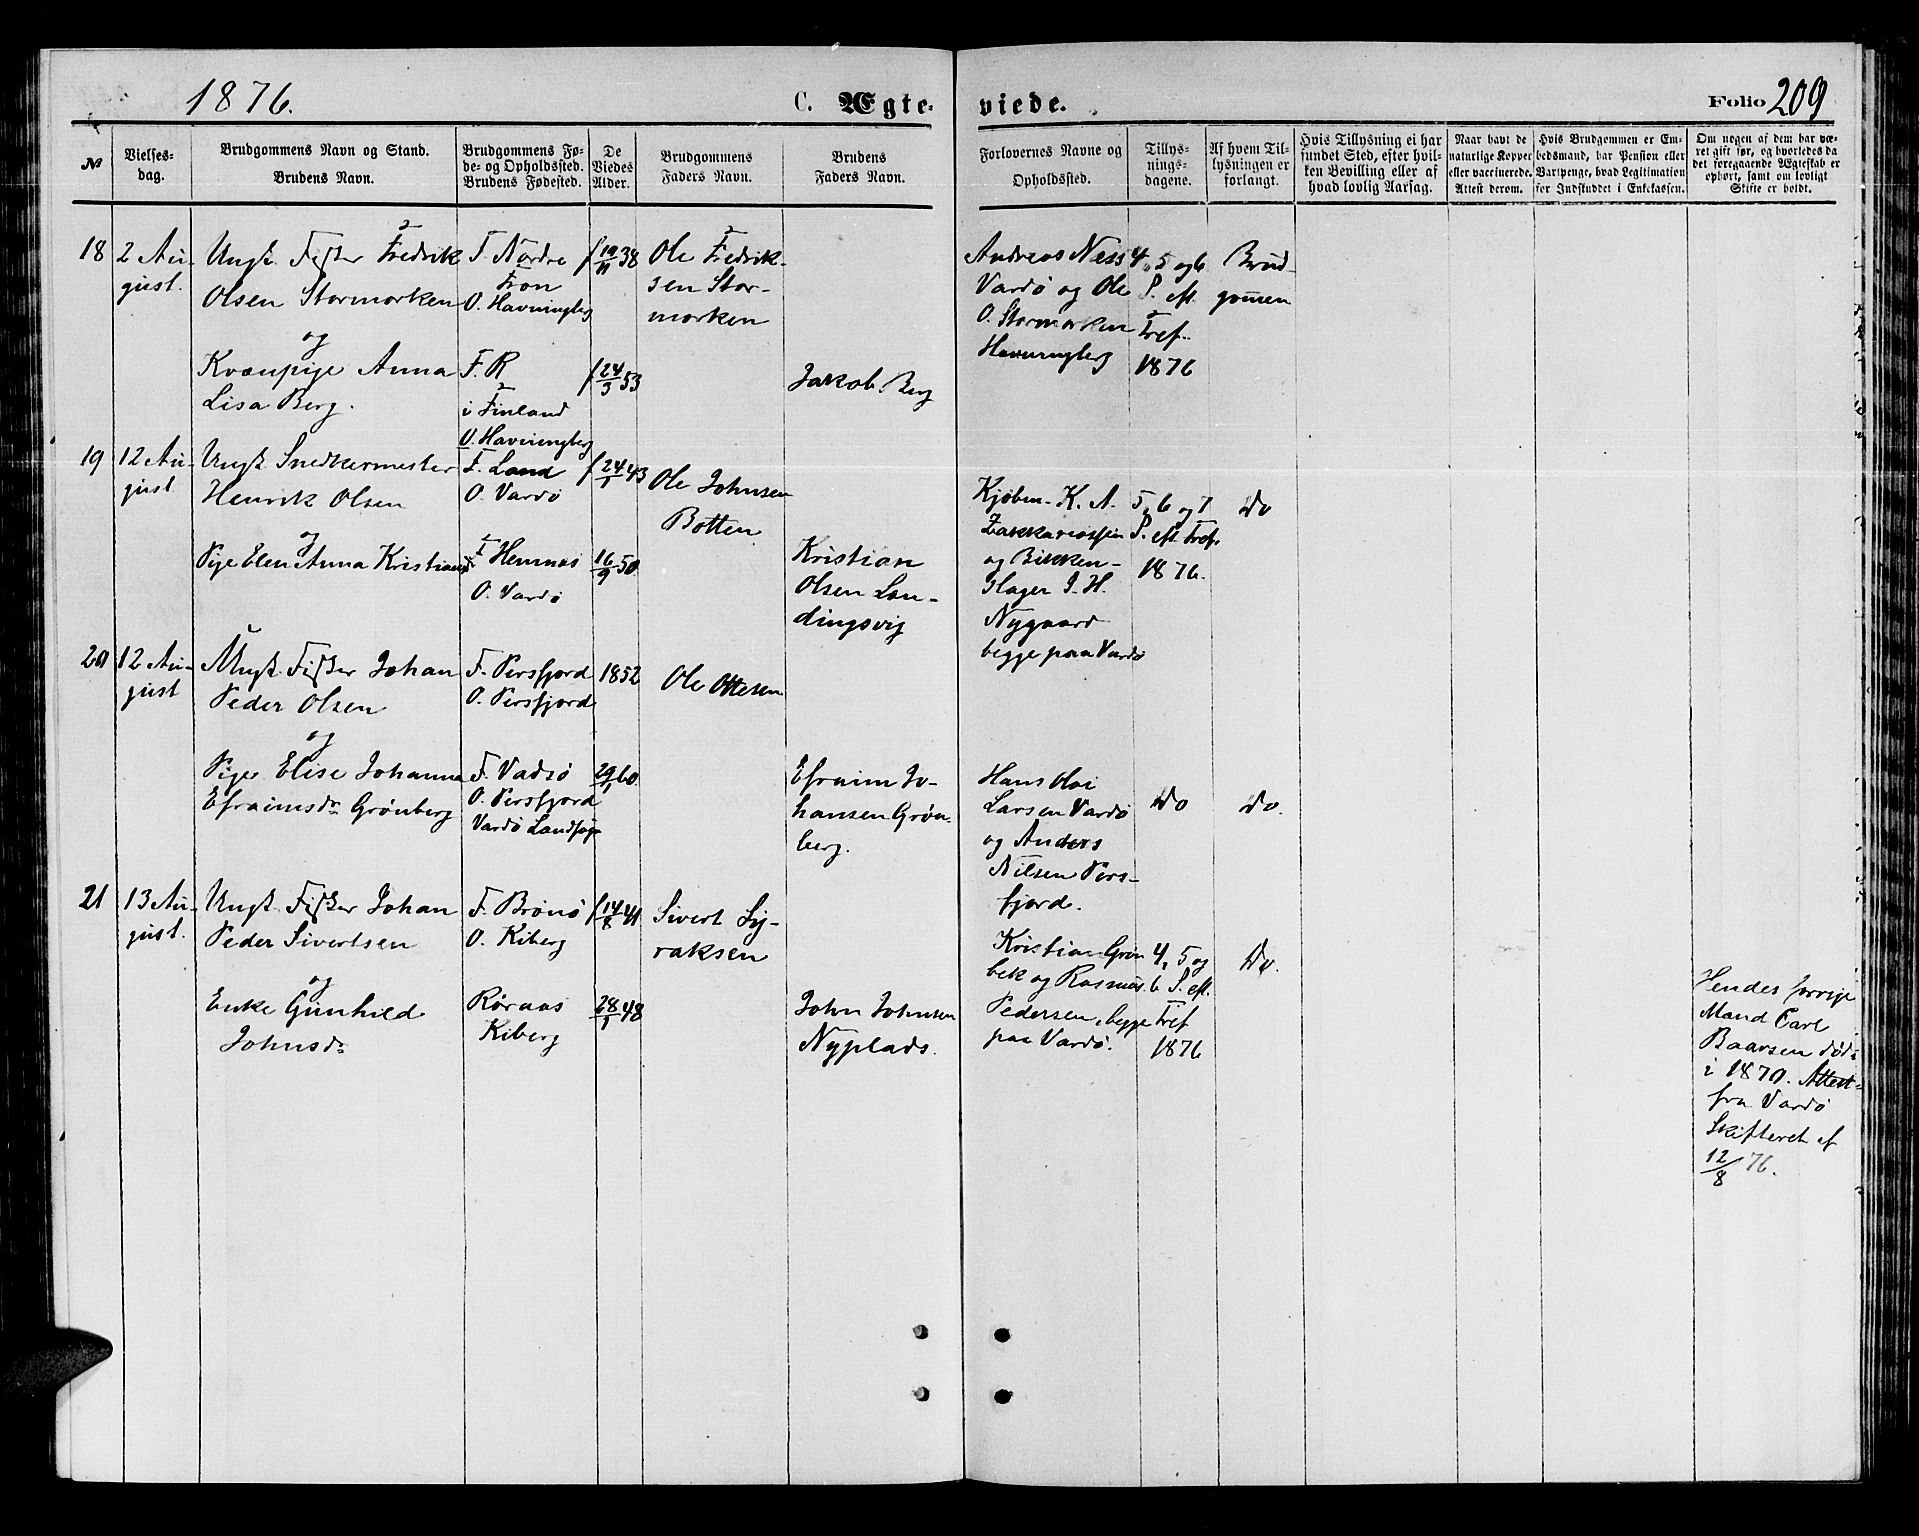 1876.
C. Ægte-
viede.
Folio 209
№
Vielses-
dag.
Brudgommens Navn og Stand.
Brudens Navn.
Brudgommens Fø-
de- og Opholdssted.
Brudens Fødested.
De
Viedes
Alder.
Brudgommens
Faders Navn.
Brudens
Faders Navn.
Forlovernes Navne og
Opholdssted.
Tillys-
nings-
dagene.
Af hvem Til-
lysningen er
forlangt.
Hvis Tillysning ei har
fundet Sted, efter hvil-
ken Bevilling eller af
hvad lovlig Aarsag.
Naar havt de
naturlige Kopper
eller vaccinerede.
Attest derom.
Hvis Brudgommen er Em-
bedsmand, har Pension eller
Vartpenge, hvad Legitimation
for Indskuddet i Enkekassen.
Om nogen af dem har væ-
ret gift før, og hvorledes da
det foregaaende Ægteskab er
ophørt, samt om lovligt
Skifte er holdt.
18
2 Au-
gust.
Ungk. Fisker Fredrik
Olsen Stormorken
og
Kvænpige Anna
Lisa Berg.
F. Nordre
Fron
O. Havningberg
F. R
i Finland
O. Havningberg
f 19/11 38
f 24/3 53
Ole Fredrik-
sen Stor-
morken
Jakob Berg
Andreas Næss
Vardø og Ole
O. Stormorken
Havningberg
4, 5 og 6
S. eft.
Tref.
1876
Brud-
gommen
19
12 Au-
gust
Ungk. Snedkermester
Henrik Olsen
og
Pige Elen Anna Kristiansd
F. Land
O. Vardø
F. Hemnæs
O. Vardø
f 24/1 43
16/9 50
Ole Johnsen
Botten
Kristian
Olsen Lan-
dingsvig
Kjøbm. K. A.
Zakkariassen
og Bikken-
slager I. H.
Nygaard
begge paa Vardø
5, 6 og 7
S. eft Tref.
1876.
Do
20
12 Au-
gust
Ungk. Fisker Johan
Peder Olsen
og
Pige Elise Johanna
Efraimsdr Grønberg
F. Persfjord
O. Persfjord
F. Vadsø
O. Persfjord
Vardø Landsogn
1852
29/1 60
Ole Ottesen
Efraim Jo-
hansen Grøn-
berg.
Hans Hoi
Larsen Vardø
og Anders
Nilsen Pers-
fjord.
Do
Do.
21
13 Au-
gust.
Ungk. Fisker Johan
Peder Sivertsen
og
Enke Gunhild
Johnsdr
F. Brønø
O. Kiberg
Røraas
Kiberg
f 14/8 41
28/1 48
Sivert Sy-
raksen
John Johnsen
Nyplads.
Kristian Grøn
bek og Rasmus
Pedersen, begge
paa Vardø.
4, 5 og
6 S. eft.
Tref
1876
Do.
Hendes forrige
Mand Carl
Baarsen død
i 1870. Attest
fra Vardø
Skifteret af
12/8 76.